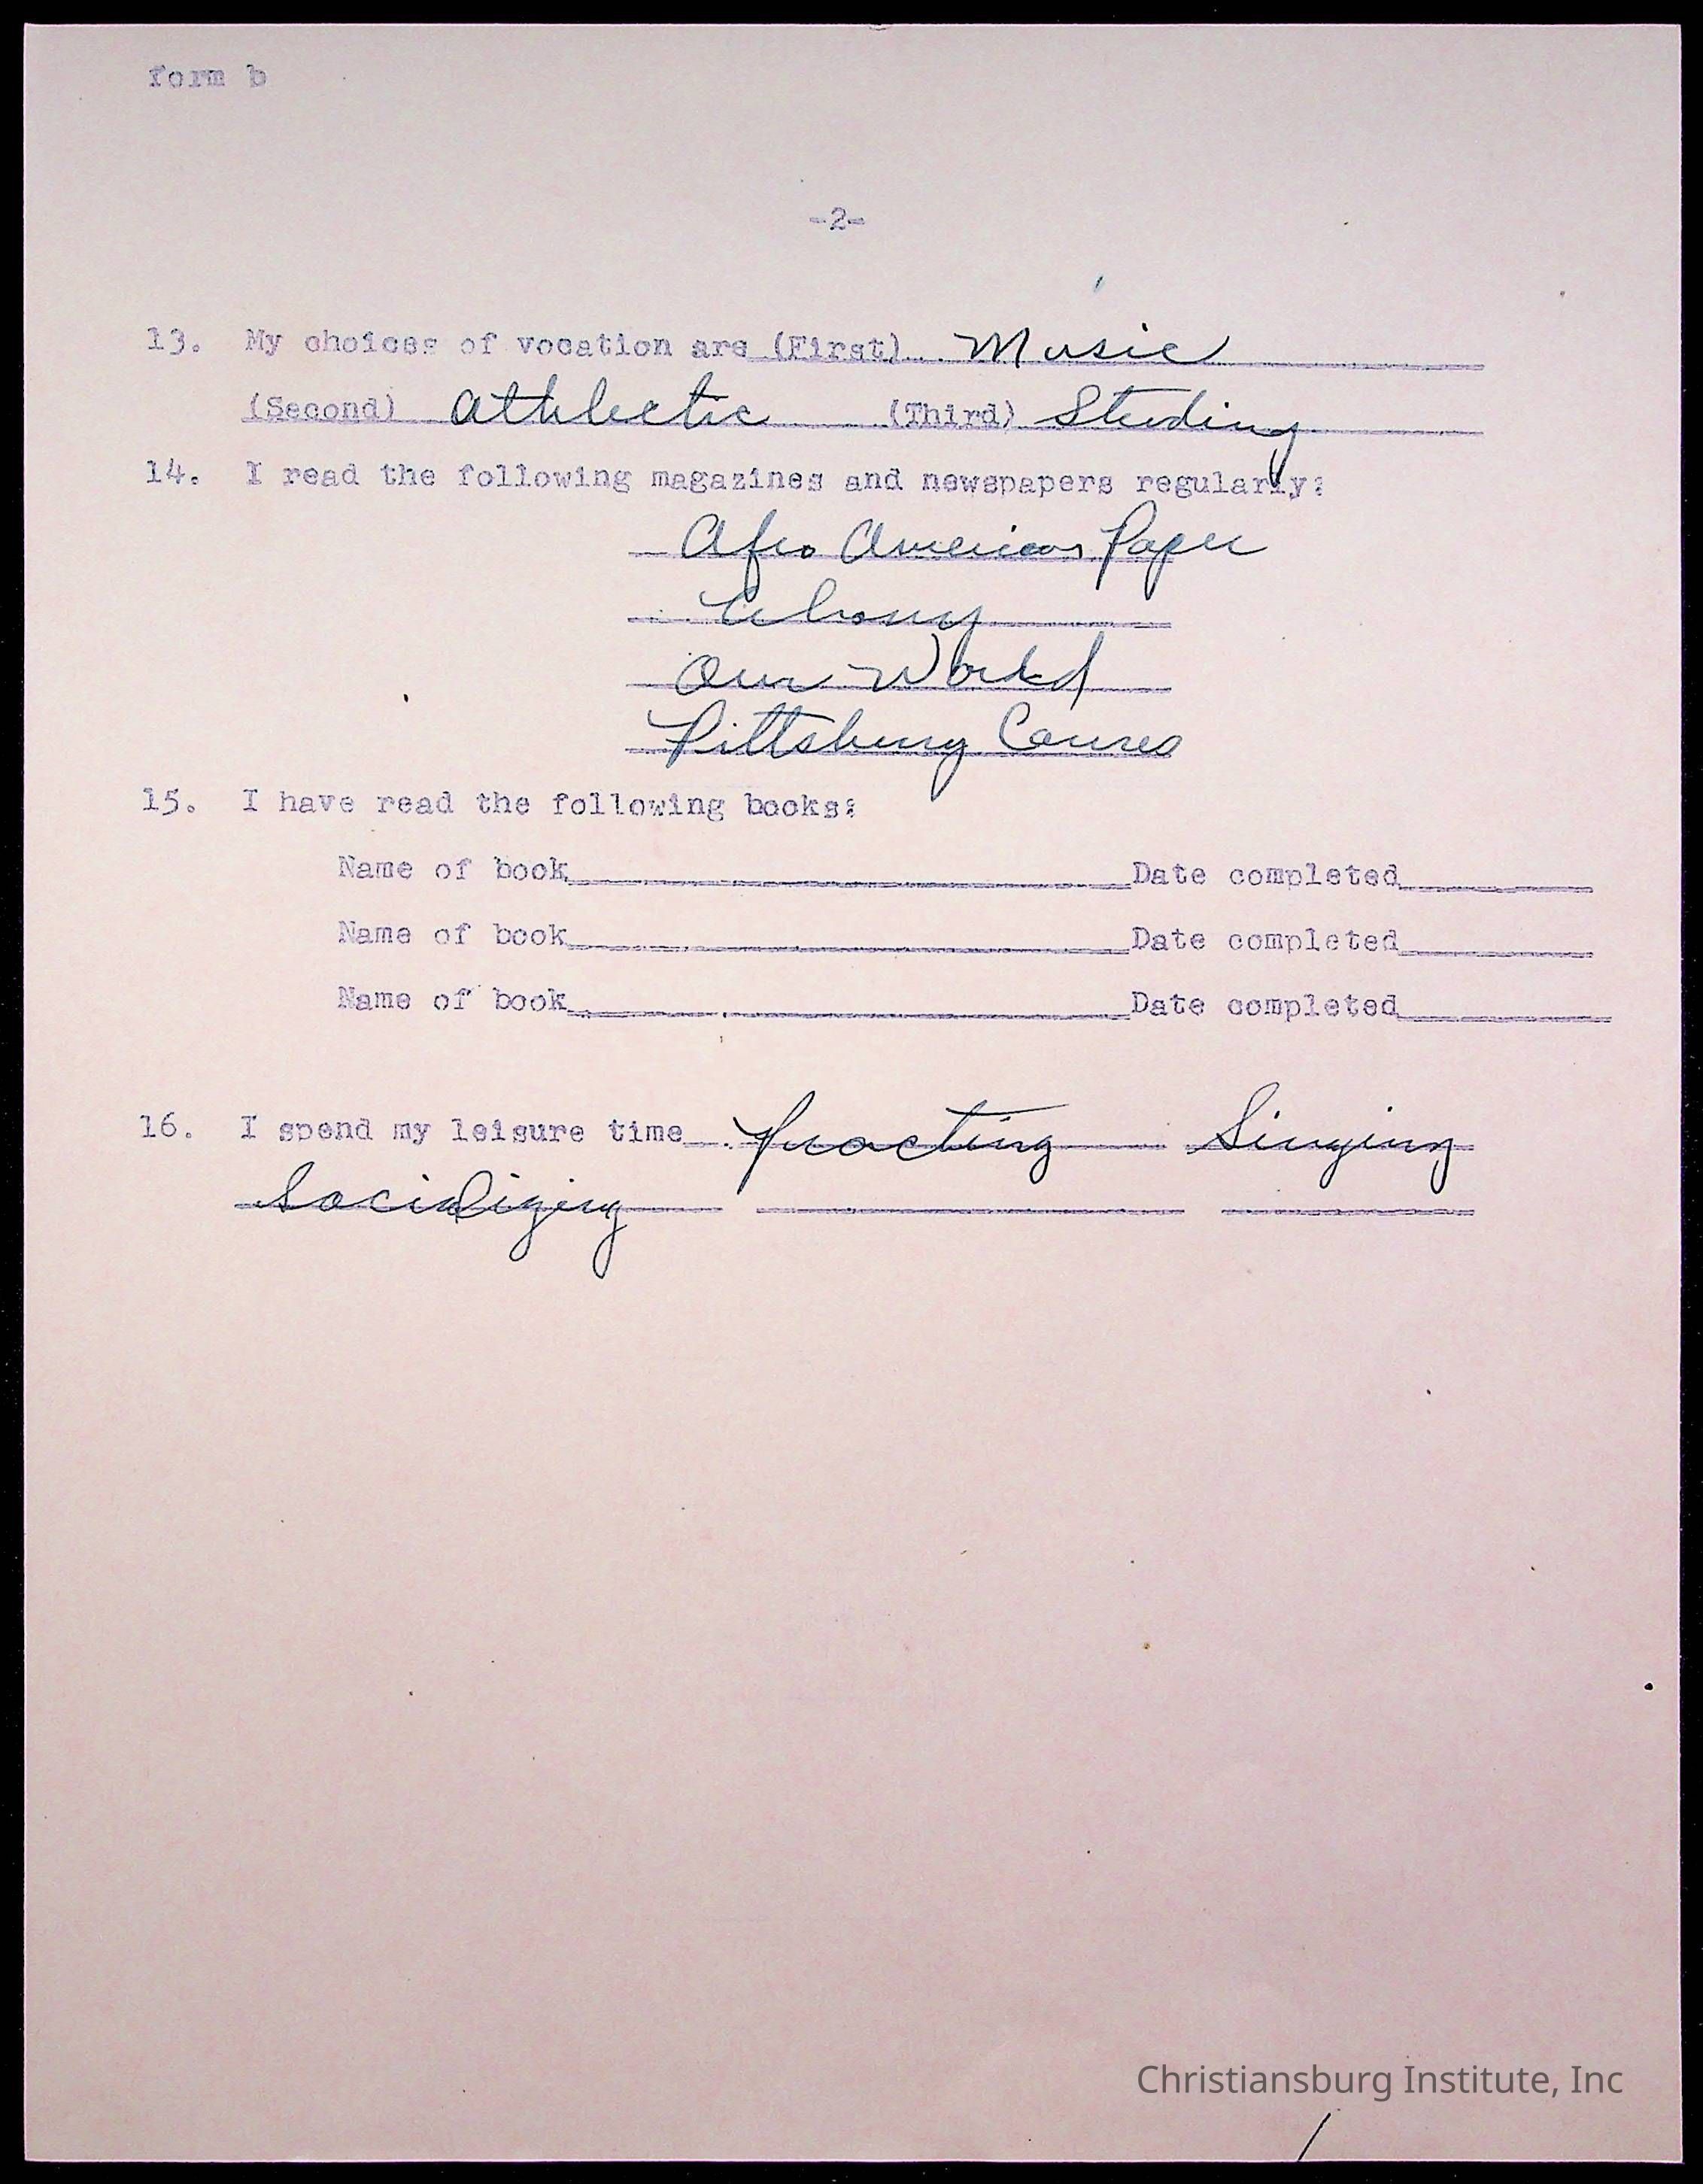 form b
-2-
13. My choices of vocation are (First) Music
(Second) Athlectic (Third) Studing
14. I read the following magazines and newspapers regularly:
Afro American Paper
Ebony
Our World
Pittsburg Coures
15. I have read the following books:
Name of book Date completed
Name of book Date completed
Name of book Date completed
16. I spend my leisure time Practing Singing
Socializing
Christiansburg Institute, Inc